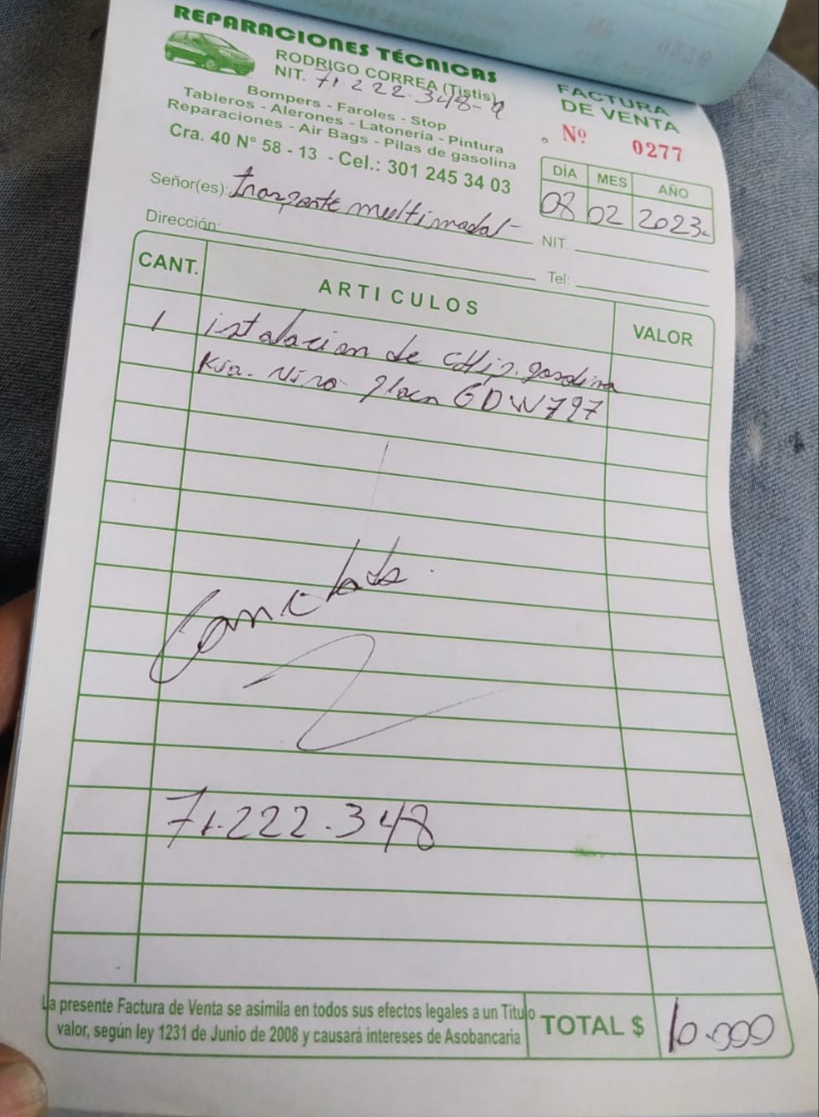 REPARACIONES TÉCNICAS
RODRIGO CORREA (Tistis)
NIT. 71.222.348-9
Bompers - Faroles - Stop
Tableros - Alerones - Latonería - Pintura
Reparaciones - Air Bags - Pilas de gasolina
Cra. 40 N° 58 - 13 - Cel.: 301 245 34 03
FACTURA
DE VENTA
Nº 0277
DÍA MES AÑO
08 02 2023
Señor(es): Trasporte multimodal
NIT.
Dirección:
Tel:
CANT. ARTICULOS VALOR
1 istalacion de CHip. gasolina
Kia. Niro placa GDW797
Cancelado.
71.222.348
La presente Factura de Venta se asimila en todos sus efectos legales a un Título
valor, según ley 1231 de Junio de 2008 y causará intereses de Asobancaria
TOTAL $ 10.000